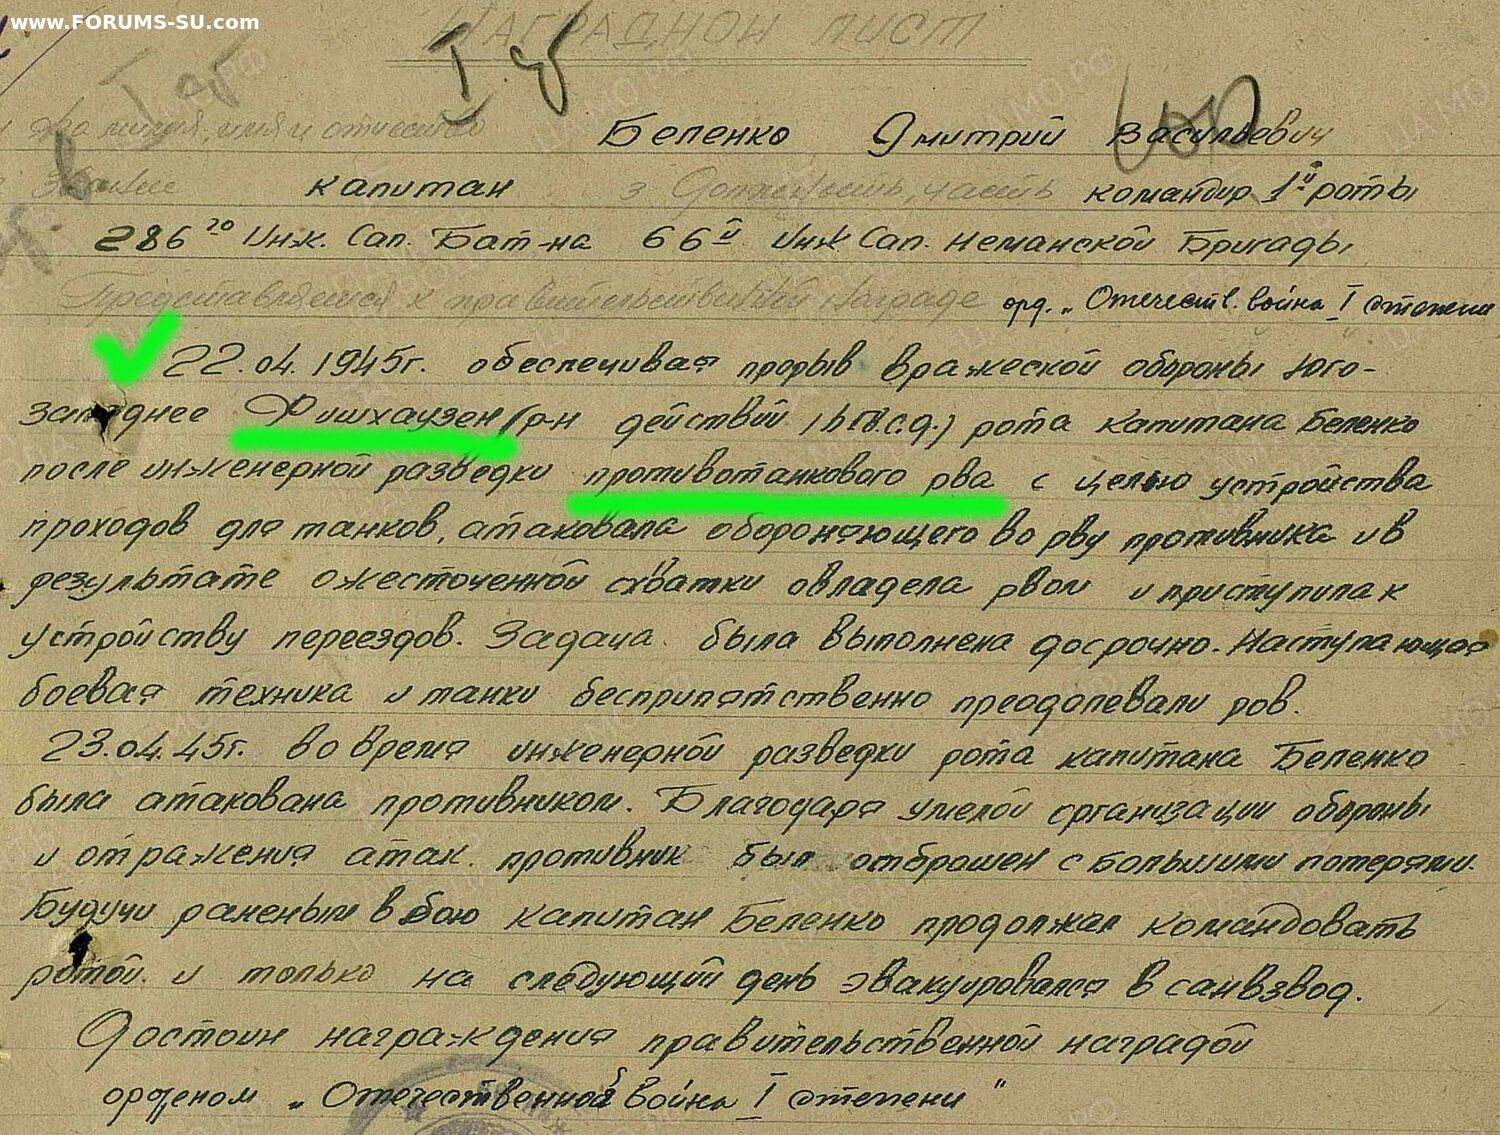 www.FORUMS-SU.com
НАГРАДНОЙ ЛИСТ
Фамилия, имя и отчество Беленко Дмитрий Васильевич
Звание капитан 3 Должность, часть командир 1й роты
286го Инж. Сап. Бат-на 66й Инж Сап. Неманской Бригады
Представляется к правительственной награде орд. „Отечеств. война I степени
22.04.1945г. обеспечивая прорыв вражеской обороны Юго-
западнее Фишхаузен (р-н действий) рота капитана Беленко
после инженерной разведки противотанкового рва с целью устройства
проходов для танков, атаковала обороняющего во рву противника и в
результате ожесточенной схватки овладела рвом и приступила к
устройству переездов. Задача была выполнена досрочно. Наступающая
боевая техника и танки бесприпятственно преодолевали ров.
23.04.45г. во время инженерной разведки рота капитана Беленко
была атакована противником. Благодаря умелой организации обороны
и отражения атак противник был отброшен с большими потерями.
Будучи раненым в бою капитан Беленко продолжал командовать
ротой и только на следующий день эвакуировался в санвзвод.
Достоин награждения правительственной наградой
орденом „Отечественной война I степени"